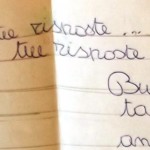 tue risposte ...
tue risposte
Bu
ta
an